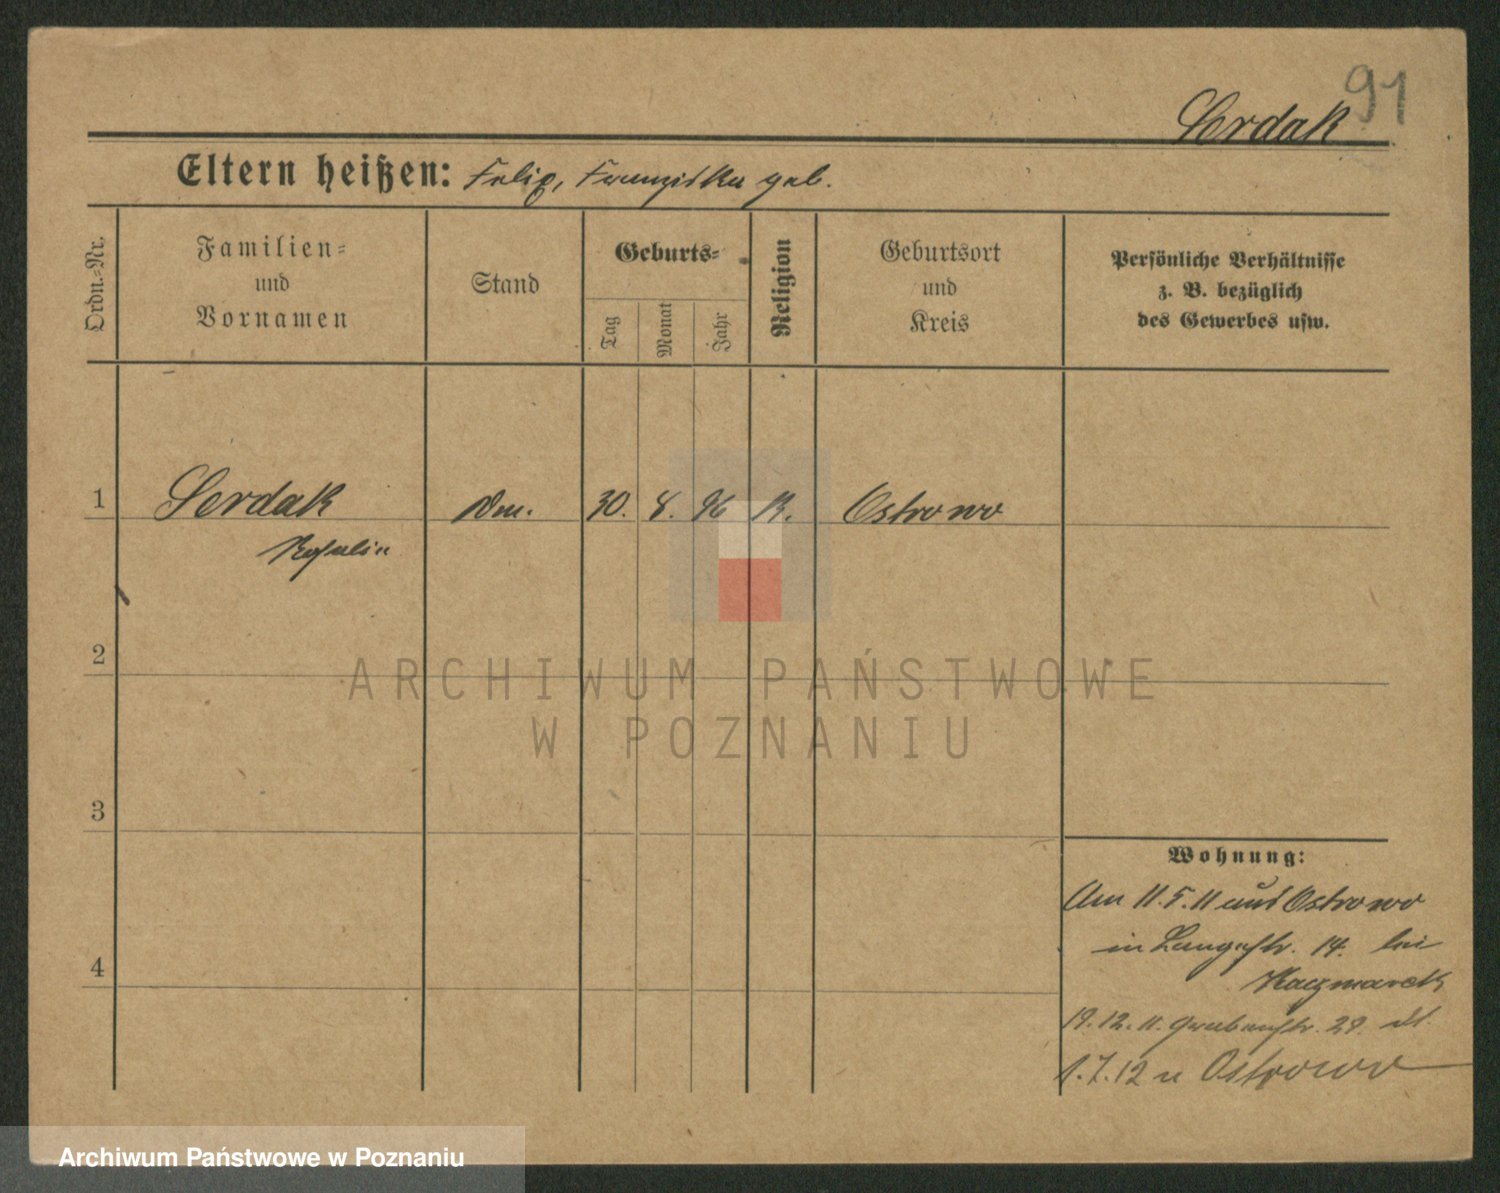 91
Serdak
Eltern heißen: Felix, Franziska geb.
Ordn.-Nr.
Familien-
und
Vornamen
Stand
Geburts-
Tag
Monat
Jahr
Religion
Geburtsort
und
Kreis
Persönliche Verhältnisse
z. B. bezüglich
des Gewerbes usw.
1 Serdak 30. 8. 96 K. Ostrowo
Rosalie
2
ARCHIWUM PAŃSTWOWE
W POZNANIU
3
Wohnung:
Am 11.5.11 aus Ostrowo
in Langestr. 14. bei
4
Kaczmarek
19.12.11. Grabenstr. 28.
1.7.12 n Ostrowo
Archiwum Państwowe w Poznaniu